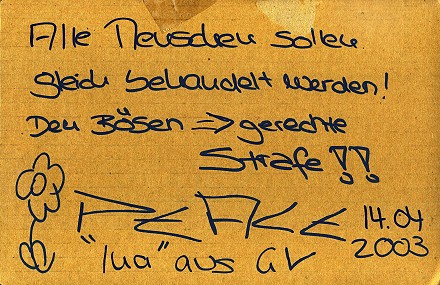 Alle Menschen sollen
gleich behandelt werden!
Den Bösen => gerechte
Strafe!!
14.04
2003
"Ina" aus GV